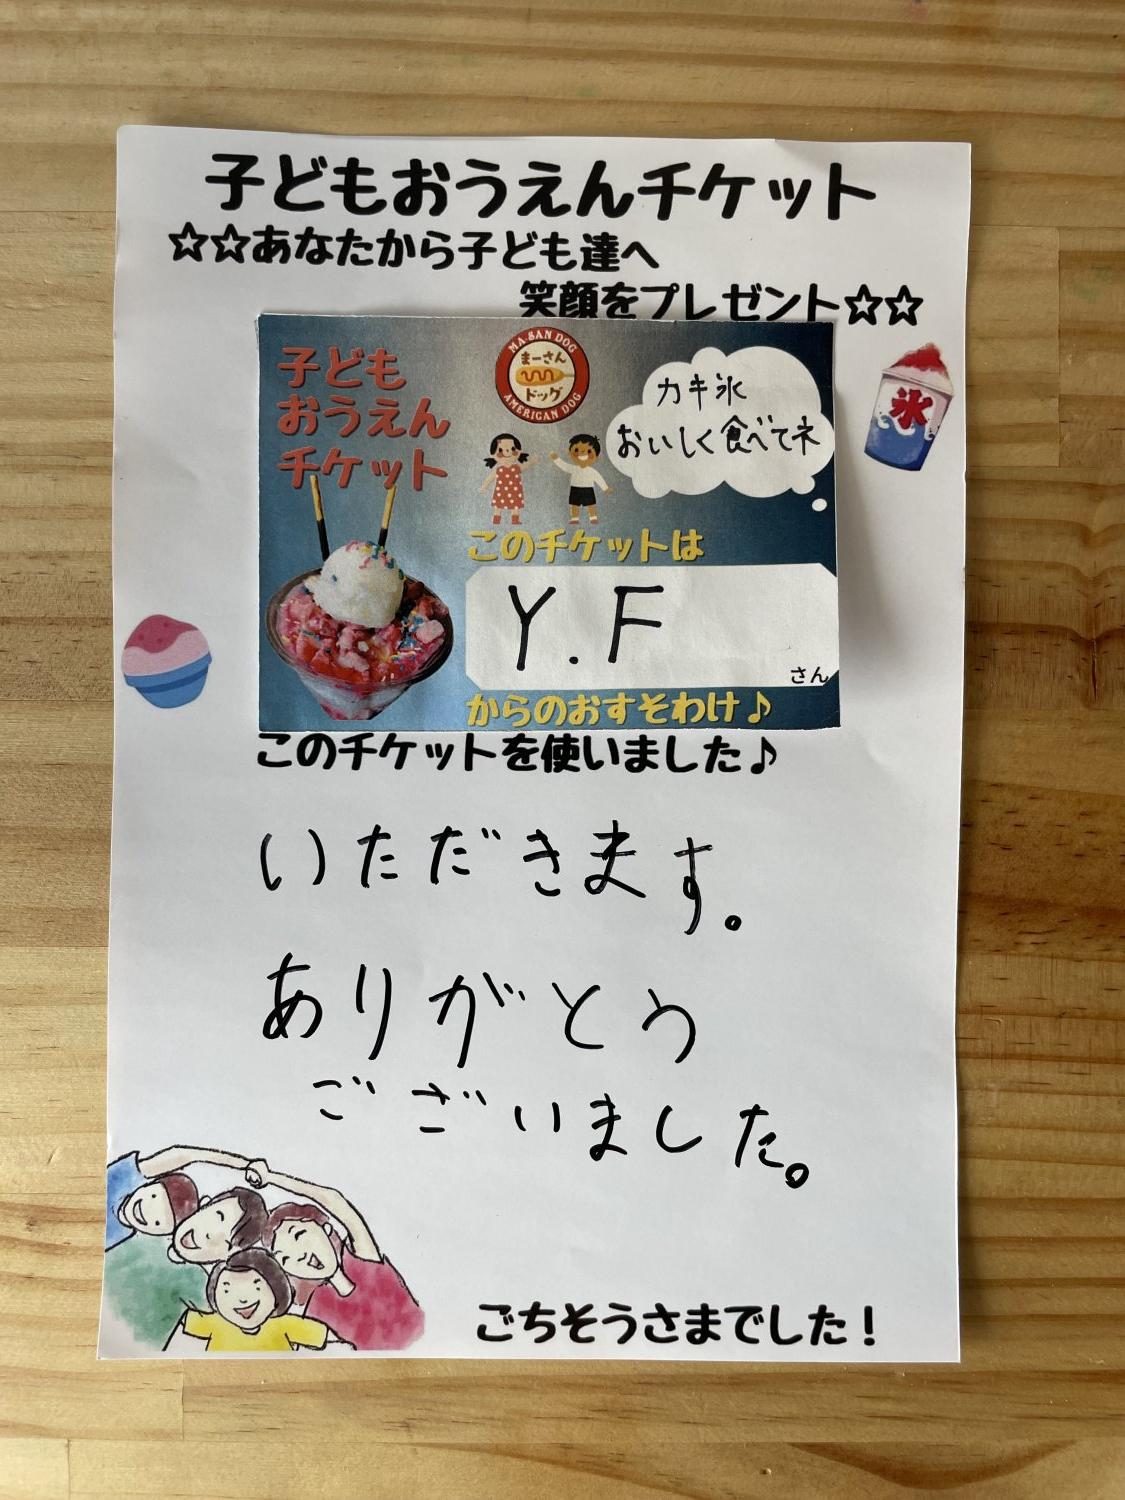 子どもおうえんチケット
☆☆あなたから子ども達へ
笑顔をプレゼント☆☆
子ども
おうえん
チケット
MA.SAN DOG
まーさん
ドッグ
AMERICAN DOG
カキ氷
おいしく食べてネ
氷
このチケットは
Y.F
さん
からのおすそわけ♪
このチケットを使いました♪
いただきます。
ありがとう
ございました。
ごちそうさまでした!